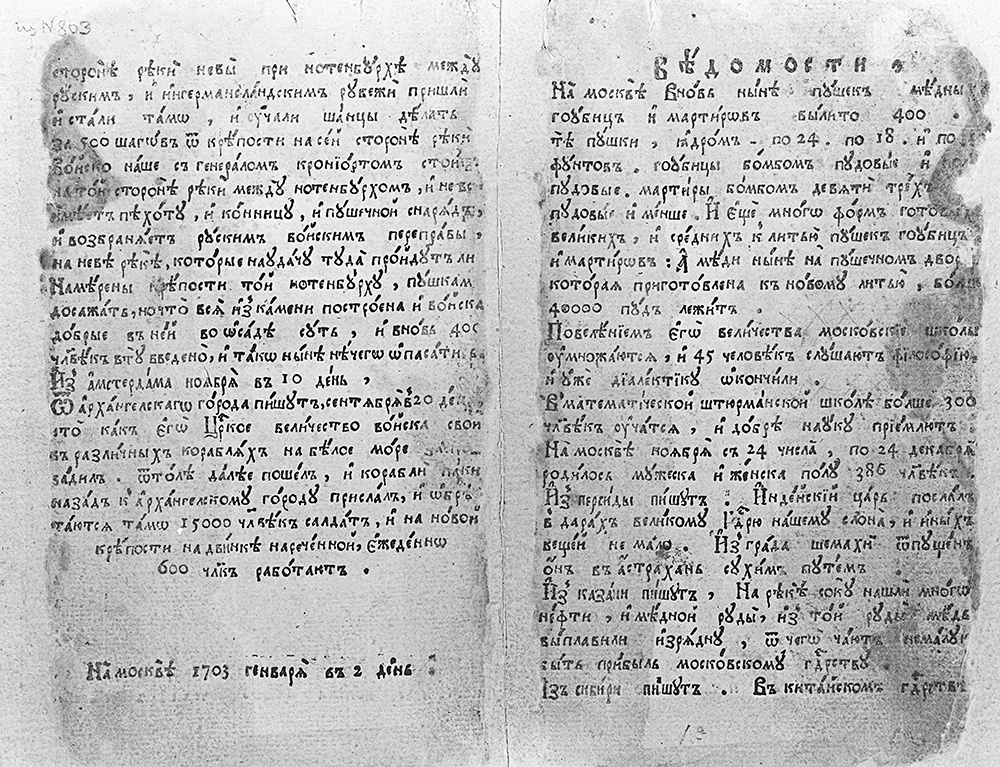 из N 803
сторонѣ рѣки невы при нотенбурхѣ между
рускимъ, и ингерманландскимъ рубежи пришли
и стали тамѡ, и ѹчали шанцы дѣлать
за 500 шагѡвъ ѿ крѣпости на сей сторонѣ рѣки
войско наше съ генераломъ крониортомъ стоитъ
на той сторонѣ рѣки между нотенбурхомъ, и невс
имѣетъ пѣхоту, и конницу, и пушечной снарядъ,
и возбраняетъ рускимъ войскимъ переправы,
на невѣ рѣкѣ, которые наудачу туда пройдутъ ли
Намѣрены крѣпости той нотенбурху, пушкам
досажать, но что вся из камени построена и войска
добрые въ ней во ѡсадѣ суть, и вновь 400
члвѣкъ в ту введено, и такѡ нынѣ нѣчегѡ ѡпасати
Из амстердама ноября въ 10 день,
Ѿ архангелскагѡ города пишутъ, сентября въ 20 день,
что какъ егѡ Црское величество войска свои
въ различныхъ корабляхъ на бѣлое море
задилъ. ѿтолѣ далѣе пошелъ, и корабли паки
назадъ к архангелскому городу прислалъ, и ѡбрѣ
таются тамѡ 15000 члвѣкъ салдатъ, и на новой
крѣпости на двинкѣ нареченной, ежеденнѡ
600 члкъ работаютъ.
На москвѣ 1703 генваря въ 2 день.
Вѣдомости,
На москвѣ вновь нынѣ пушекъ мѣдны
гоубицъ и мартирѡвъ вылито 400.
тѣ пушки, ядромъ по 24. по 18. и по
фунтовъ. гоубицы бомбомъ пудовые и пол
пудовые. мартиры бомбомъ девяти трехъ
пудовые и менше. И еще многѡ формъ готовы
великихъ, и среднихъ к литью пушекъ гоубицъ
и мартирѡвъ: А мѣди нынѣ на пушечномъ двор
которая приготовлена къ новому литью, болш
40000 пудъ лежитъ.
Повелѣніемъ егѡ величества московскіе школы
ѹмножаются, и 45 человѣкъ слушаютъ философію,
и уже діалектіку ѡкончили.
В математіческой штюрманской школѣ болше 300
члвѣкъ ѹчатся, и добрѣ науку пріемлютъ.
На москвѣ ноября съ 24 числа, по 24 декабря
родилось мужеска и женска полу 386 члвѣкъ.
Из персиды пишутъ. Индѣйскій царь послалъ
в дарахъ великому Гдрю нашему слона, и иныхъ
вещей не мало. Из града шемахи ѿпущенъ
онъ въ астрахань сухимъ путемъ.
Из казани пишутъ, На рѣкѣ соку нашли многѡ
нефти, и мѣдной руды, из той руды мѣдь
выплавили изрядну, ѿ чегѡ чаютъ немалую
быть прибыль московскому гдрству.
Із сибири пишутъ. Въ китайскомъ гдрств